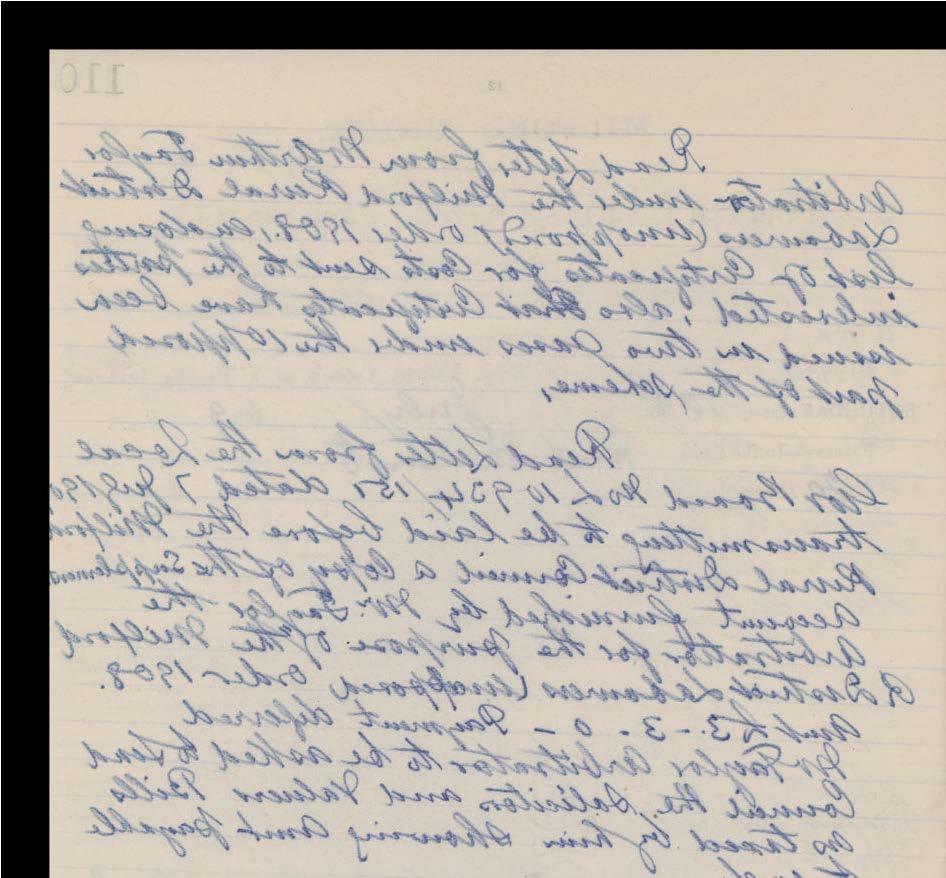 110
12
Read letter from Taylor
Arbitrator under the Milford Rural District
Labourers (Unoppord) order 1908, enclosing
list of Certificates for Costs sent to the parties
interested, also that Certificates have been
issued in two cases under the Opposed
part of the scheme,
Read letter from the Local
Gov Board No L 10934/15, dated 7
transmitting to be laid before the Milford
Rural District Council a Copy of the Supplement
Account furnished by Mr. Taylor the
Arbitrator for the purpose of the Milford
R District Labourers (Unopposed order 1908.
Amt £3 - 3 - 0 - Payment deferred,
Mr Taylor Arbitrator to be asked to send
Council the Solicitor and Valuers Bills
as taxed by him showing amt payable